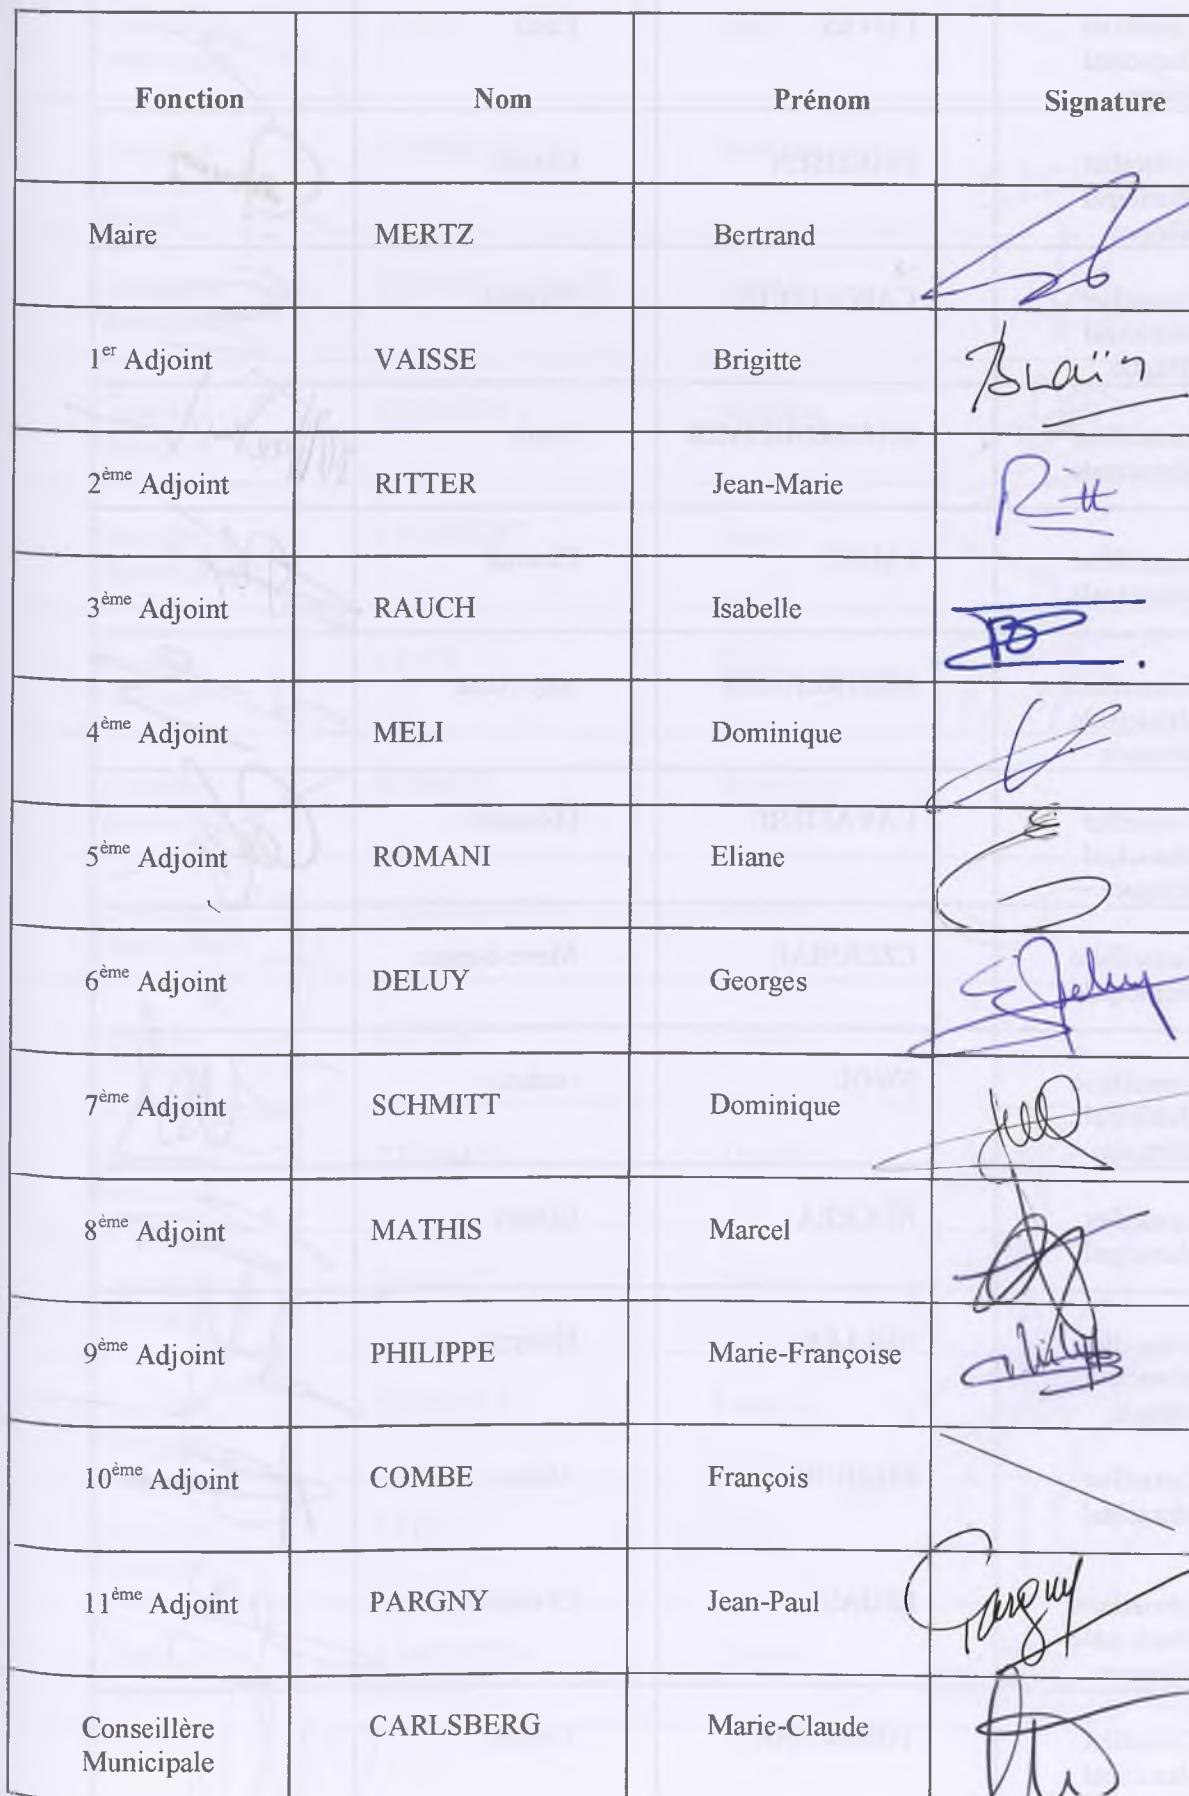 Fonction Nom Prénom Signature
Maire MERTZ Bertrand
1er Adjoint VAISSE Brigitte
2ème Adjoint RITTER Jean-Marie
3ème Adjoint RAUCH Isabelle
4ème Adjoint MELI Dominique
5ème Adjoint ROMANI Eliane
6ème Adjoint DELUY Georges
7ème Adjoint SCHMITT Dominique
8ème Adjoint MATHIS Marcel
9ème Adjoint PHILIPPE Marie-Françoise
10ème Adjoint COMBE François
11ème Adjoint PARGNY Jean-Paul Pargny
Conseillère CARLSBERG Marie-Claude
Municipale